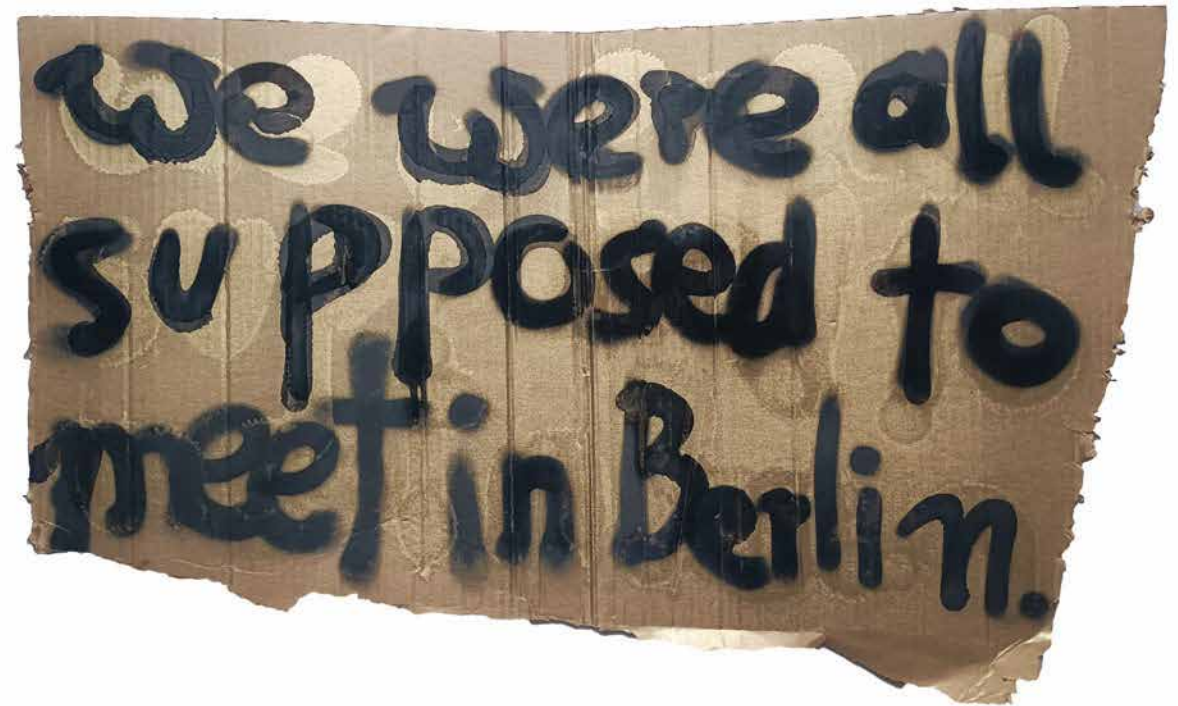 we were all
supposed to
meet in Berlin.